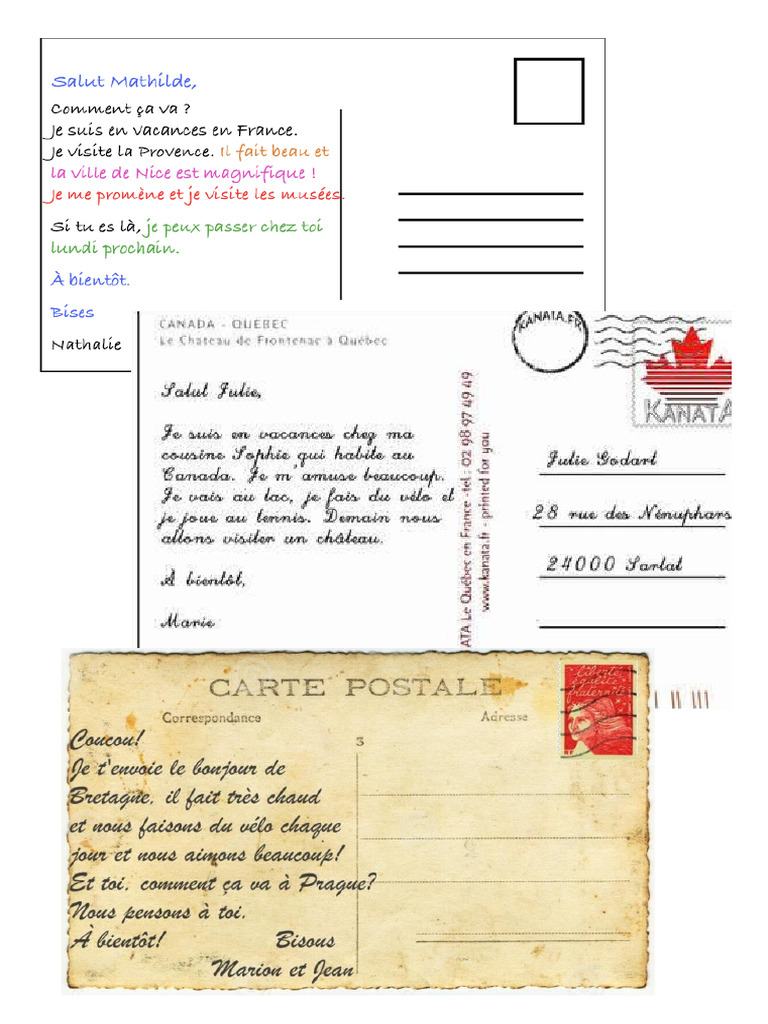 Salut Mathilde,
Comment ça va ?
Je suis en vacances en France.
Je visite la Provence. Il fait beau et
la ville de Nice est magnifique !
Je me promène et je visite les musées.
Si tu es là, je peux passer chez toi
lundi prochain.
À bientôt.
Bises
Nathalie
CANADA - QUEBEC
Le Chateau de Frontenac à Québec
Salut Julie,
Je suis en vacances chez ma
cousine Sophie qui habite au
Canada. Je m'amuse beaucoup.
Je vais au lac, je fais du vélo et
je joue au tennis. Demain nous
allons visiter un château.
À bientôt,
Marie
ATA Le Québec en France - tel : 02 98 97 49 49
www.kanata.fr - printed for you
KANATA.FR
KANATA
Julie Godart
28 rue des Nénuphars
24000 Sarlat
CARTE POSTALE
Correspondance
Adresse
liberté
égalité
fraternité
RF
3
Coucou!
Je t'envoie le bonjour de
Bretagne, il fait très chaud
et nous faisons du vélo chaque
jour et nous aimons beaucoup!
Et toi, comment ça va à Prague?
Nous pensons à toi.
À bientôt! Bisous
Marion et Jean